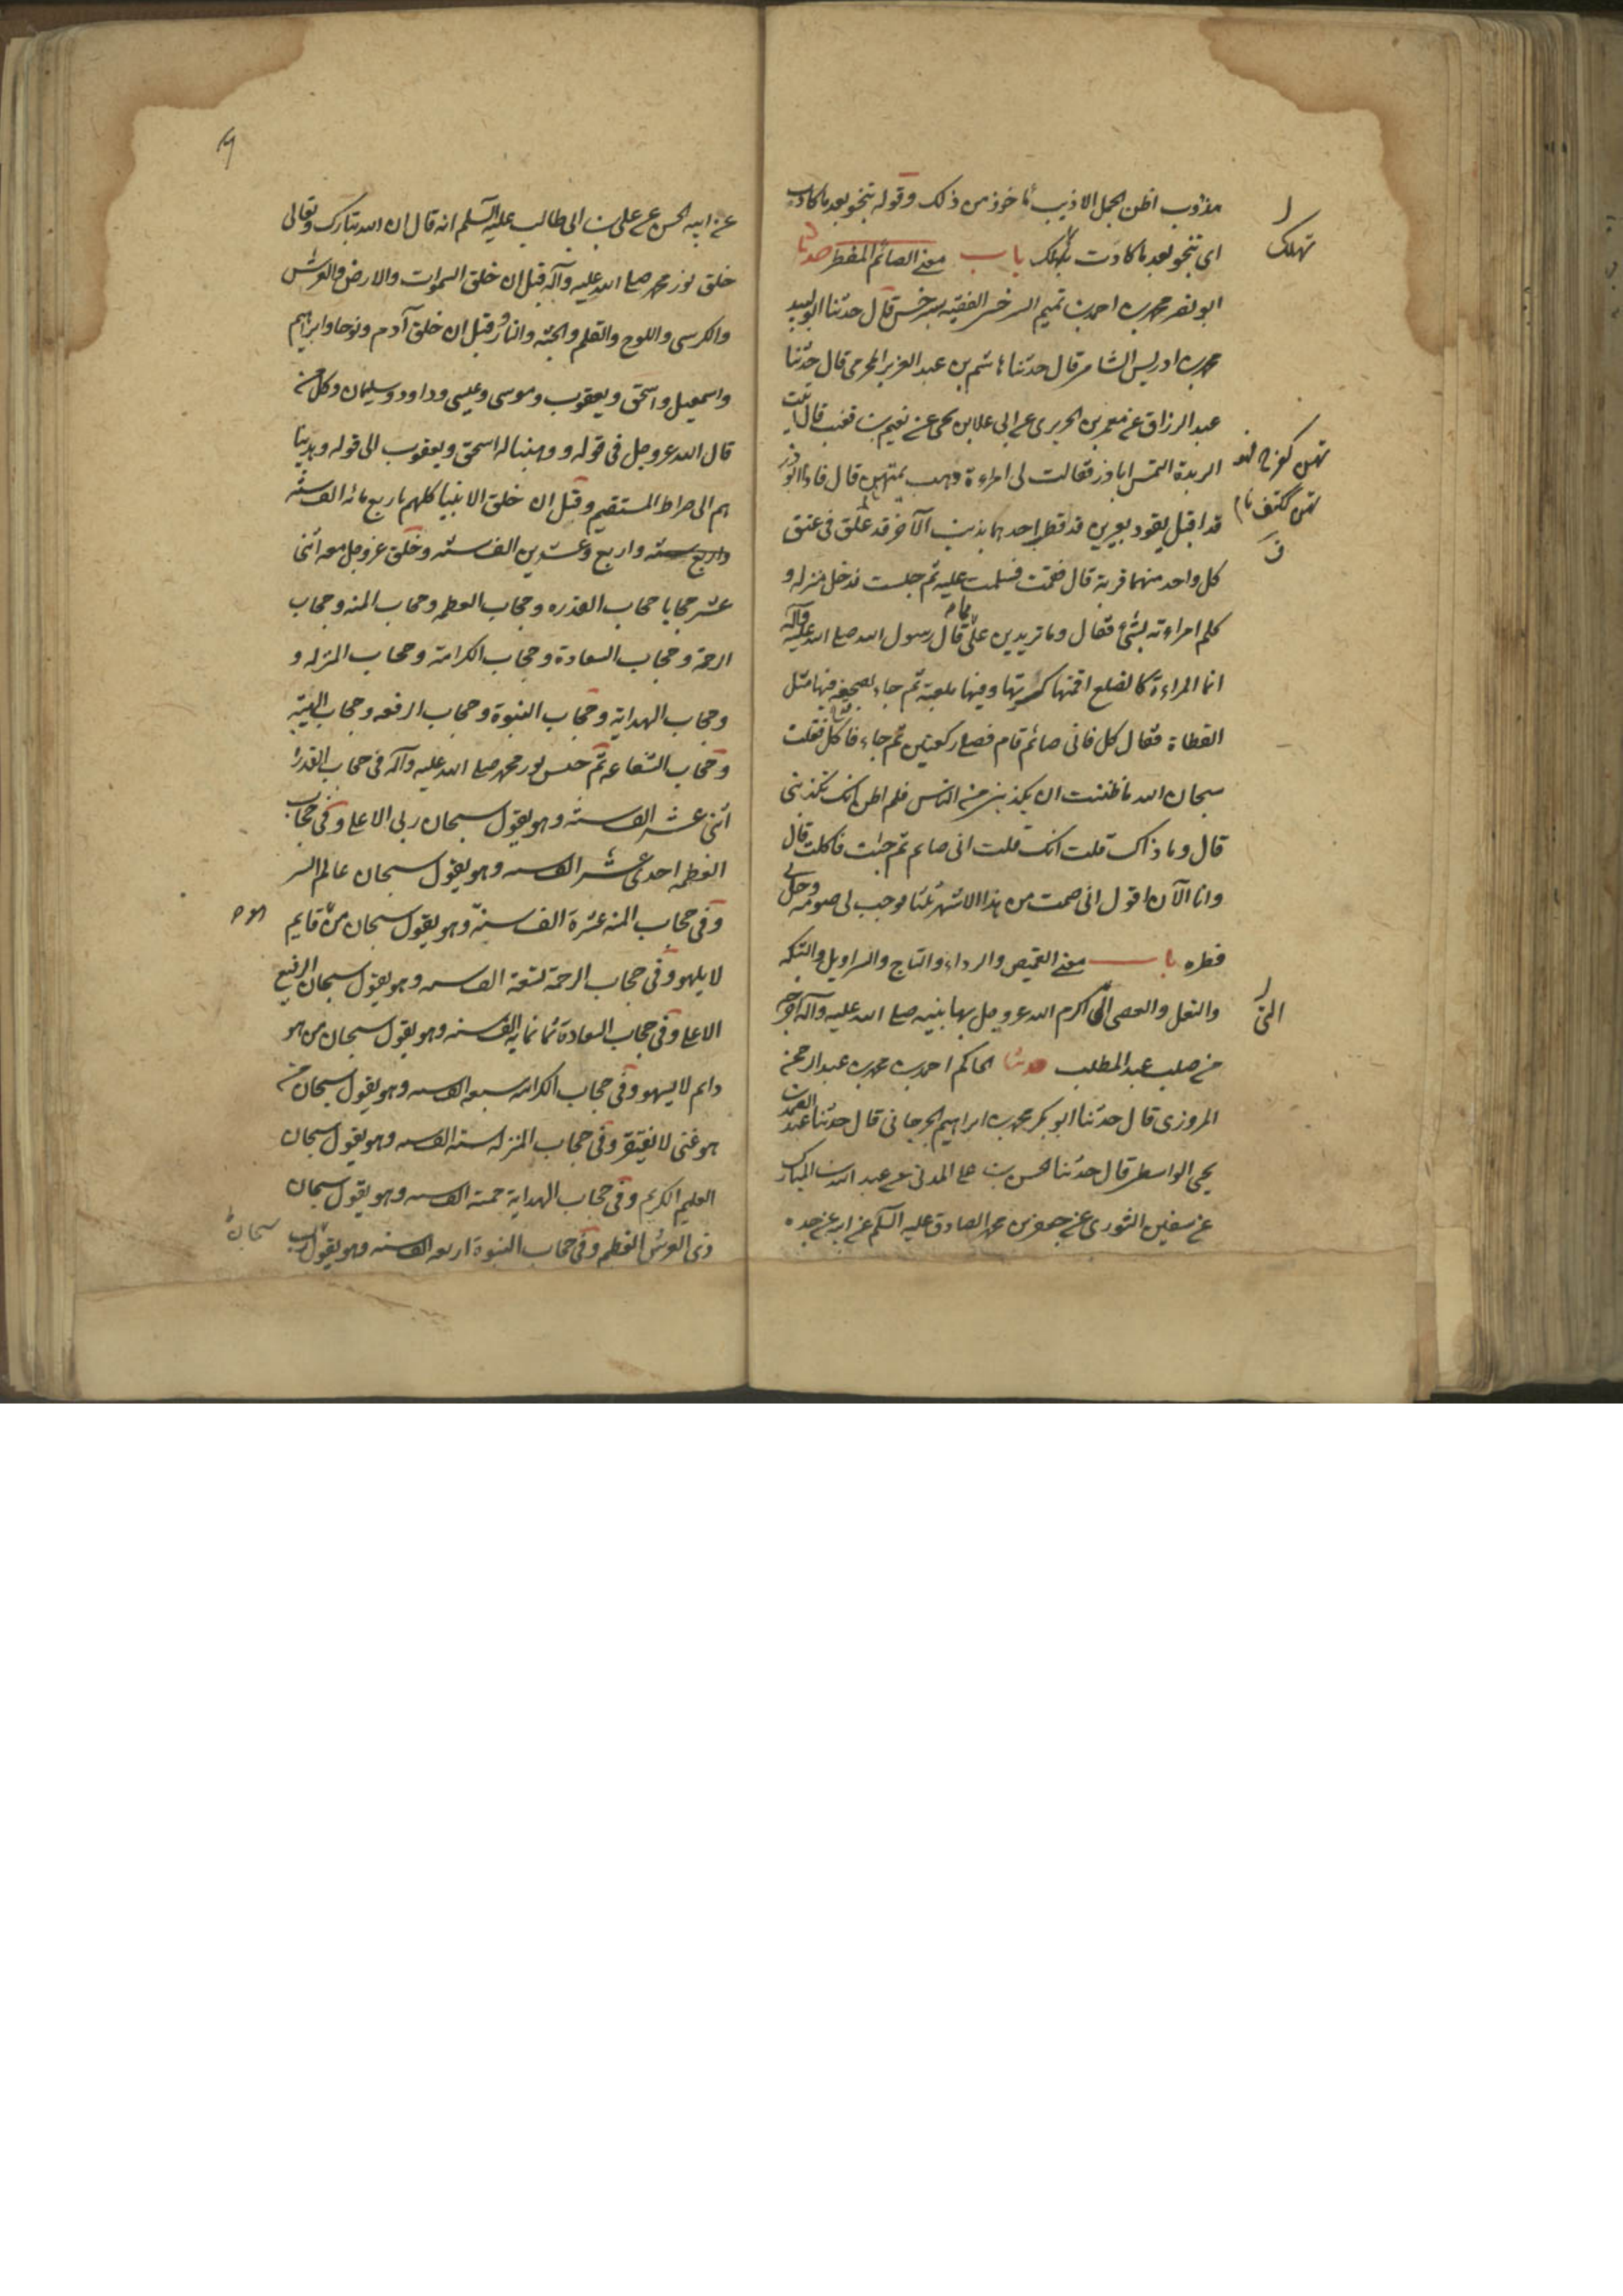 مذوب اظن الجمل الاذيب ماخوذ من ذلك وقوله ينجو بعد ما كادت
اى تنجو بعد ما كادت تهلك باب معنى الصائم المفطر حدثنا
ابو نصر محمد بن احمد بن تميم السرخسى الفقيه بسرخس قال حدثنا ابو لبيد
محمد بن ادريس الشامى قال حدثنا هاشم بن عبد العزيز المخرمى قال حدثنا
عبد الرزاق عن معمر بن الجريرى عن ابى علا بن يحيى عن نعيم بن قعنب قال اتيت
الربذة التمس اباذر فقالت لى امراءة ذهب يمتهن قال فاذا ابوذر
قد اقبل يقود بعيرين قد قطر احدهما بذنب الآخر قد علق فى عنق
كل واحد منهما قربة قال فقمت فسلمت عليه ثم جلست فدخل منزله و
كلم امراءته بشئ فقال وما تريدين على ما قال رسول الله صلى الله عليه وآله
انما المراءة كالضلع اقمتها كسرتها وفيها بلغة ثم جاء بصحيفة فيها مثل
القطاة فقال كل فانى صائم قام فصلى ركعتين ثم جاء فاكل فقلت
سبحان الله ما ظننت ان يكذبنى من الناس فلم اظن انك تكذبنى
قال وما ذاك قلت انك قلت انى صايم ثم جئت فاكلت قال
وانا الآن اقول انى صمت من هذا الاشهر ثلثا فوجب لى صومه وحل لى
فطره باب معنى القميص والرداء والتاج والسراويل والتكه
والنعل والعصى التى اكرم الله عز وجل بها نبيه صلى الله عليه وآله اخرجه
من صلب عبد المطلب حدثنا الحاكم احمد بن محمد بن عبد الرحمن
المروزى قال حدثنا ابو بكر محمد بن ابراهيم الجرجانى قال حدثنا عبد الصمد بن
يحيى الواسطى قال حدثنا الحسن بن على المدنى عن عبد الله بن المبارك
عن سفين الثورى عن جعفر بن محمد الصادق عليه السلم عن ابيه عن جده
تهلك
التى
عن ابيه الحسن عن على بن ابى طالب عليه السلم انه قال ان الله تبارك وتعالى
خلق نور محمد صلى الله عليه وآله قبل ان خلق السموات والارض والعرش
والكرسى واللوح والقلم والجنه والنار وقبل ان خلق آدم ونوحا وابراهيم
واسمعيل واسحق ويعقوب وموسى وعيسى وداود وسليمان وكل من
قال الله عز وجل فى قوله ووهبنا له اسحق ويعقوب الى قوله وهدينا
هم الى صراط المستقيم وقبل ان خلق الانبيا كلهم باربع مائه الف سنه
واربع سنه واربع وعشرين الف سنه وخلق عز وجل معه اثنى
عشر حجابا حجاب القدره وحجاب العظمه وحجاب المنه وحجاب
الرحمة وحجاب السعادة وحجاب الكرامة وحجاب المنزله و
وحجاب الهداية وحجاب النبوة وحجاب الرفعه وحجاب الهيبة
وحجاب الشفاعه ثم حبس نور محمد صلى الله عليه وآله فى حجاب القدرة
اثنى عشر الف سنه وهو يقول سبحان ربى الاعلى وفى حجاب
العظمه احدى عشر الف سنه وهو يقول سبحان عالم السر
وفى حجاب المنه عشرة الف سنة وهو يقول سبحان من قايم
لا يلهو وفى حجاب الرحمة تسعة الف سنه وهو يقول سبحان الرفيع
الاعلى وفى حجاب السعادة ثمانمايه الف سنه وهو يقول سبحان من هو
دايم لا يسهو وفى حجاب الكرامه سبعه الف سنه وهو يقول سبحان من
هو غنى لا يفتقر وفى حجاب المنزله سته الف سنه وهو يقول سبحان
العليم الكريم وفى حجاب الهداية خمسة الف سنه وهو يقول سبحان
ذى العرش العظيم وفى حجاب النبوة اربعه الف سنه وهو يقول رب
سبحان